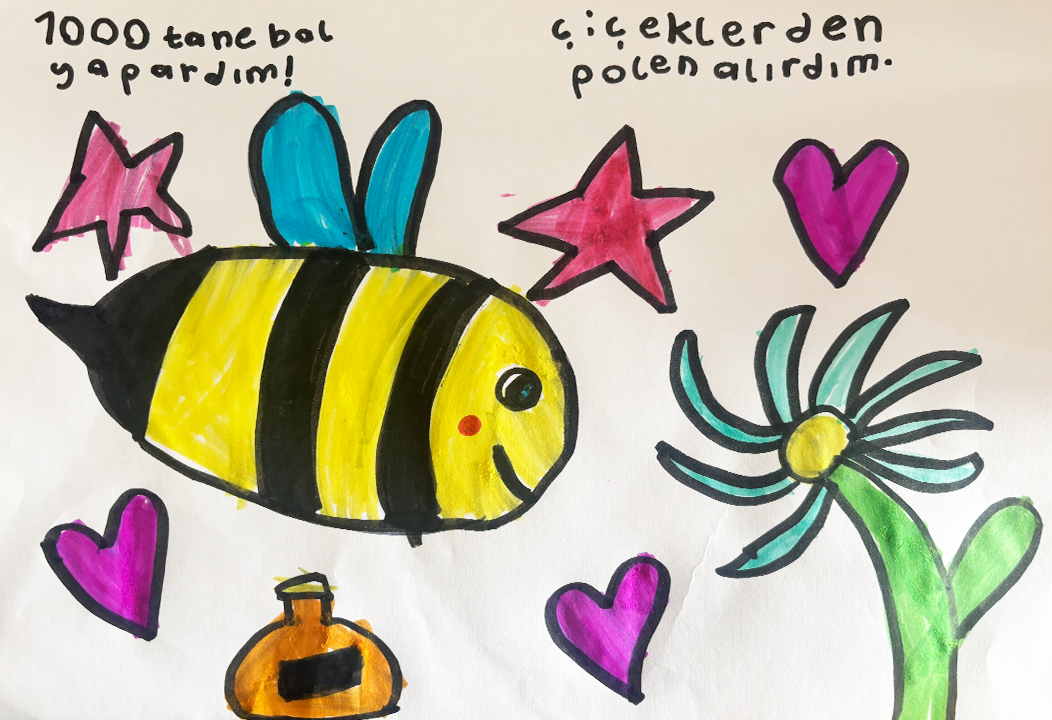 1000 tane bal
yapardım!
çiçeklerden
polen alırdım.